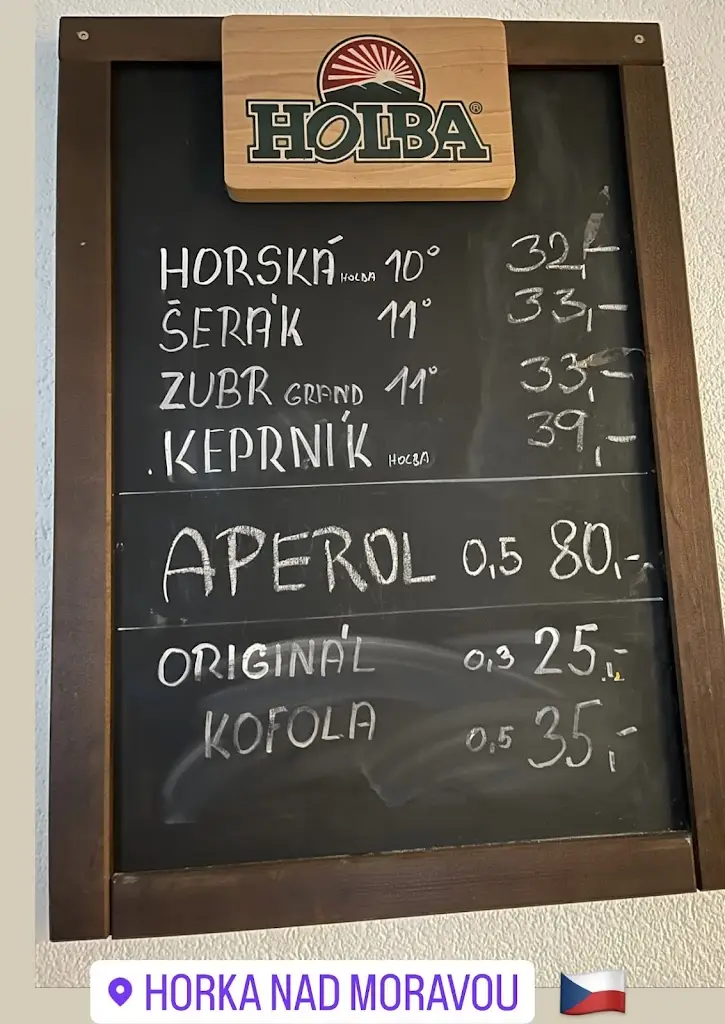 HOLBA®
HORSKÁ HOLBA 10° 32,-
ŠERÁK 11° 33,-
ZUBR GRAND 11° 33,-
.KEPRNÍK HOLBA 39,-
APEROL 0,5 80,-
ORIGINÁL 0,3 25,-
KOFOLA 0,5 35,-
HORKA NAD MORAVOU